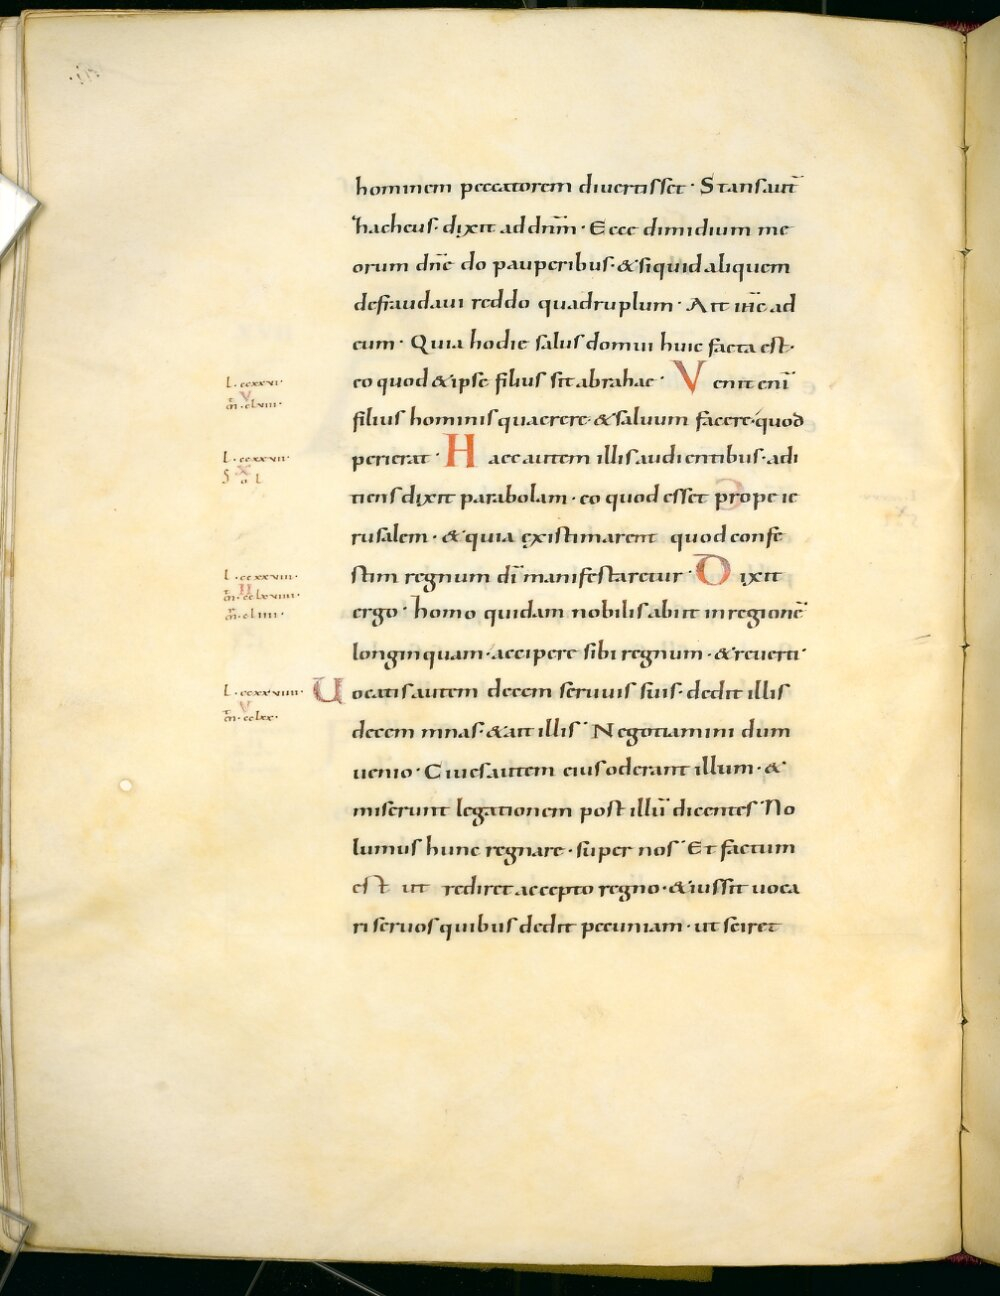 hominem peccatorem diuertisset · Stans aut̄
hacheus · dixit ad dnm̄ · Ecce dimidium me
orum dnē do pauperibus · & siquid aliquem
defraudaui reddo quadruplum · Ait ihc̄ ad
eum · Quia hodie salus domui huic facta est ·
L · ccxxvi ·
eo quod & ipse filius sit abrahae · Venit eni̅
V
m̄ · clviii ·
filius hominis quaerere · & saluum facere · quod
L · ccxxvii ·
perierat · Haec autem illis audientibus · adi
X
tiens dixit parabolam · eo quod esset prope ie
rusalem · & quia existimarent quod confe
L · ccxxviii ·
stim regnum dī manifestaretur · Dixit
II
m̄ · cclxviiii ·
m̄ · cliiii ·
ergo · homo quidam nobilis abiit in regionē
longinquam · accipere sibi regnum · & reuerti ·
L · ccxxviiii ·
Uocatis autem decem seruuis suis · dedit illis
V
m̄ · cclxx ·
decem mnas · & ait illis · Negotiamini dum
uenio · Ciues autem eius oderant illum · &
miserunt legationem post illū dicentes · No
lumus hunc regnare · super nos · Et factum
est ut rediret accepto regno · & iussit uoca
ri seruos quibus dedit pecuniam · ut sciret